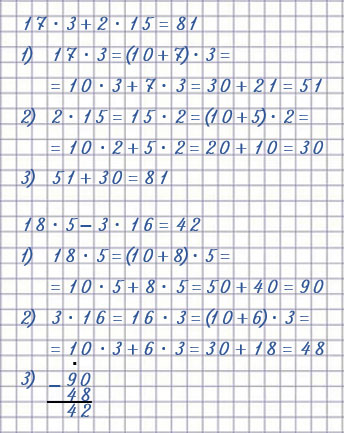 17 · 3 + 2 · 15 = 81
1) 17 · 3 = (10 + 7) · 3 =
= 10 · 3 + 7 · 3 = 30 + 21 = 51
2) 2 · 15 = 15 · 2 = (10 + 5) · 2 =
= 10 · 2 + 5 · 2 = 20 + 10 = 30
3) 51 + 30 = 81
18 · 5 − 3 · 16 = 42
1) 18 · 5 = (10 + 8) · 5 =
= 10 · 5 + 8 · 5 = 50 + 40 = 90
2) 3 · 16 = 16 · 3 = (10 + 6) · 3 =
= 10 · 3 + 6 · 3 = 30 + 18 = 48
3) − 90
48
42